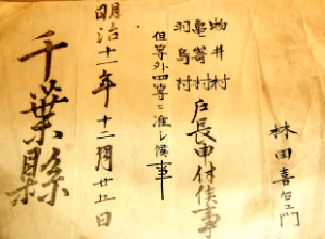 林田喜右エ門
物井村
亀崎村
羽鳥村
戸長申付候事
但等外四等ニ准シ候事
明治十一年十二月廿五日
千葉縣